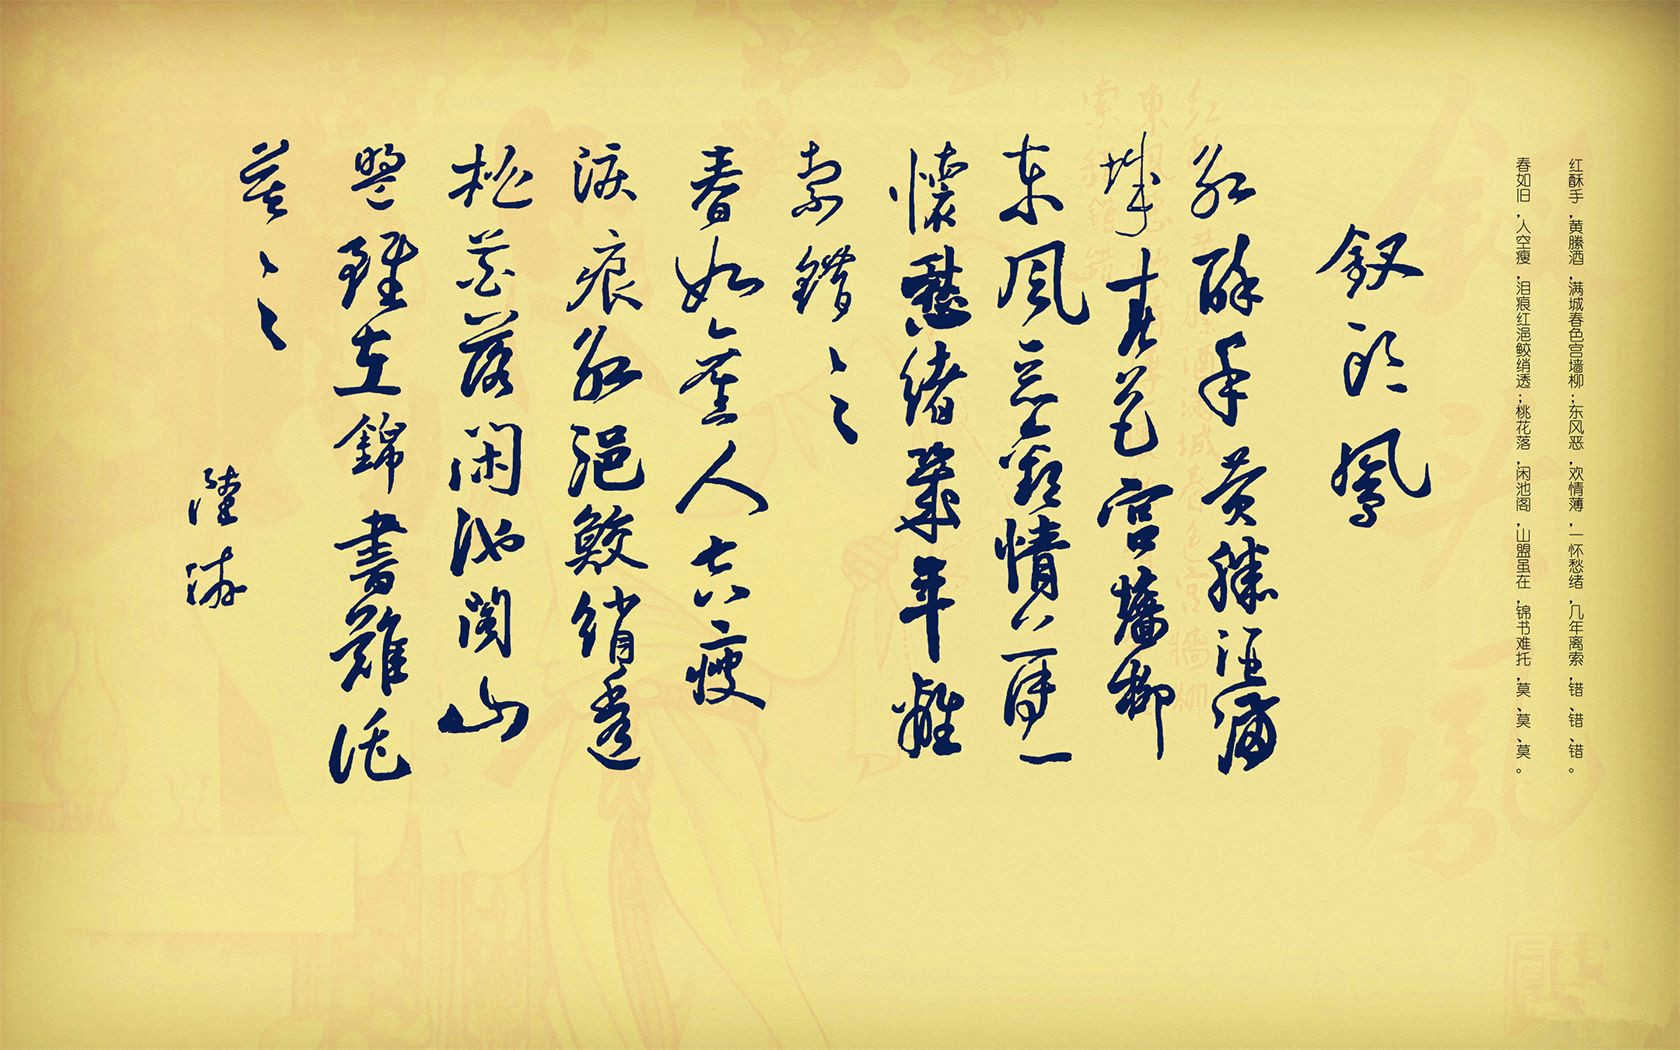 红酥手，黄縢酒，满城春色宫墙柳；东风恶，欢情薄，一怀愁绪，几年离索，错、错、错。
春如旧，人空瘦，泪痕红浥鲛绡透；桃花落，闲池阁，山盟虽在，锦书难托，莫、莫、莫。
钗头凤
红酥手黄縢酒满
城春色宫墙柳
东风恶欢情薄一
懷愁绪几年離
索错〻〻
春如舊人空瘦
淚痕红浥鮫绡透
桃花落闲池阁山
盟雖在錦書難托
莫〻〻
陸游